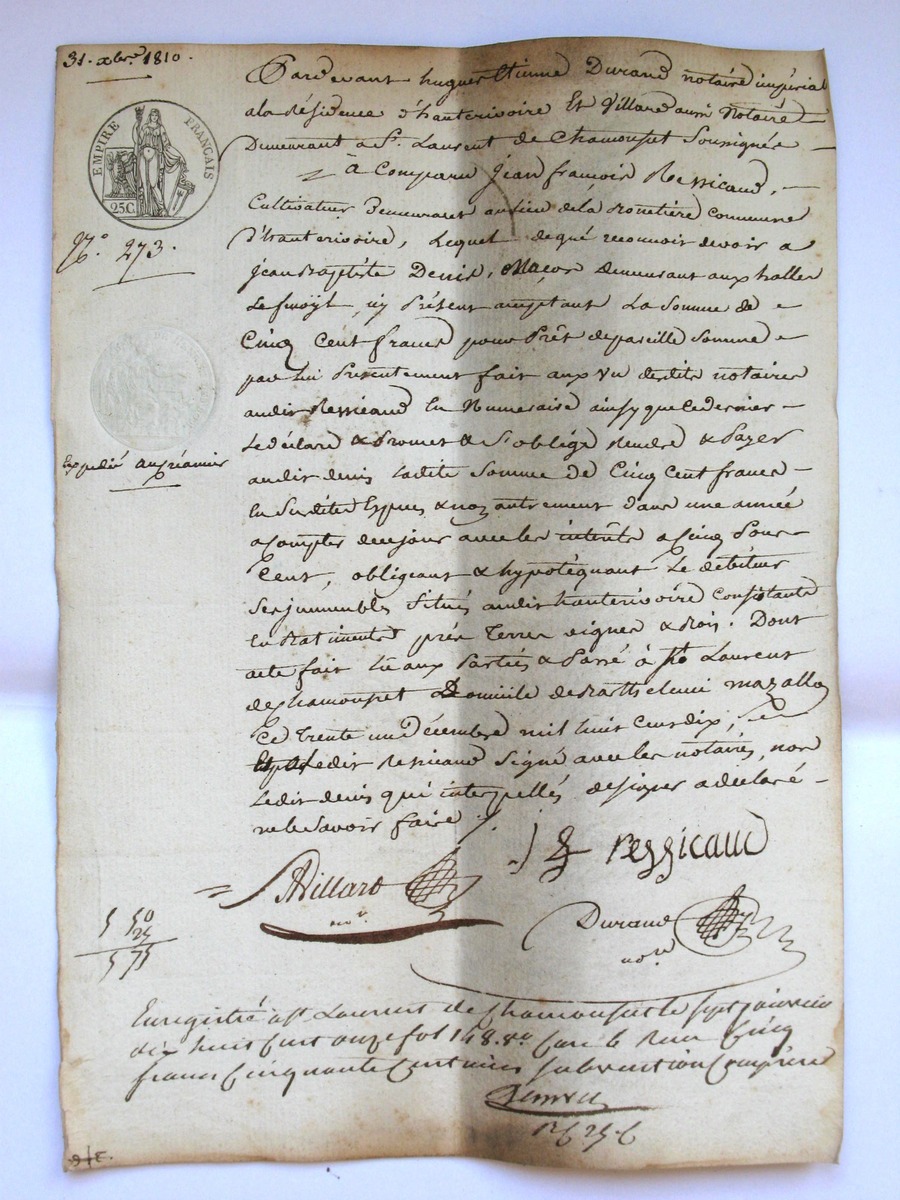 31. xbre 1810.
EMPIRE FRANÇAIS
25C
N.° 273.
Expédié au créancier
Pardevant hugues Etienne Durand notaire impérial
a la Résidence d'hauterivoire Et Villard aussi Notaire
Demeurant a St. Laurent de Chamousset Soussignés
à Comparu Jean françois Ressicaud,
Cultivateur Demeurant au lieu de la commune
d'hauterivoire, Lequel de gré reconnoit devoir a
jean Baptiste Denis, Maçon demeurant aux halles
Le, icy Présent acceptant La Somme de
Cinq Cent francs pour Prêt de pareille Somme
par lui Présentement fait aux vu desdits notaires
audit Ressicaud En Numeraire ainsy que Ce dernier
Le déclare & Promet & S'oblige Rendre & Payer
audit denis ladite Somme de Cinq Cent francs
En Susdites Espèces & non autrement dans une année
a Compter de ce jour avec les intérêts a Cinq Pour
Cent, obligeant & hypotéquant Le débiteur
Ses immeubles Situés audit hauterivoire Consistants
En Batiments près Terres vignes & Bois. Dont
acte fait Lu aux Parties & Passé à St. Laurent
de chamousset Domicile de Barthelemi mazallon
Ce Trente un Décembre mil huit Cent dix,
Ledit Ressicaud Signé avec les notaires, non
Ledit denis qui interpellés de signer a déclaré
ne le Savoir faire
J f ressicaud
Villard
nore
Durand
nore
5 50
25
5 75
Enregistré a St Laurent de Chamousset le sept janvier
dix huit Cent onze fol 148. Reçu Cinq
francs Cinquante Centimes subvention Comprise